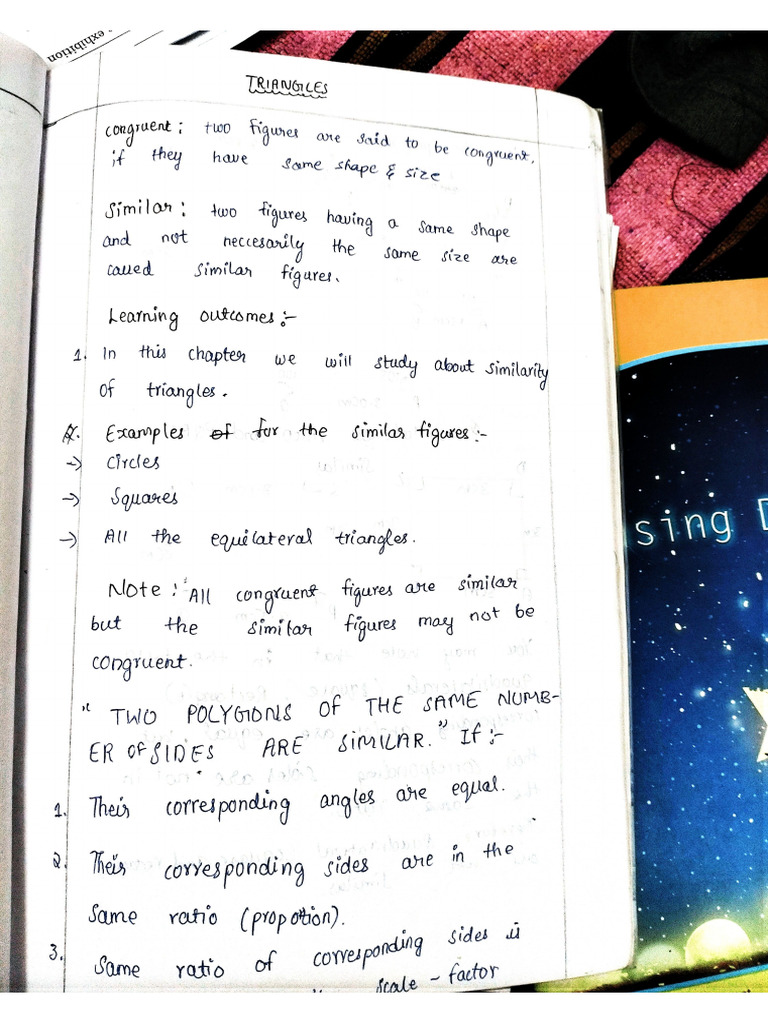 exhibition
TRIANGLES
congruent: two figures are said to be congruent,
if they have same shape & size
Similar: two figures having a same shape
and not neccesarily the same size are
called similar figures.
Learning outcomes:-
1. In this chapter we will study about similarity
of triangles.
Q. Examples of for the similar figures:-
→ Circles
→ Squares
→ All the equilateral triangles.
Note: "All congruent figures are similar
but the similar figures may not be
congruent.
" TWO POLYGONS OF THE SAME NUMB-
ER OF SIDES ARE SIMILAR." If:-
1. Their corresponding angles are equal.
2. Their corresponding sides are in the
same ratio (propotion).
3. Same ratio of corresponding sides is
scale-factor
sing D